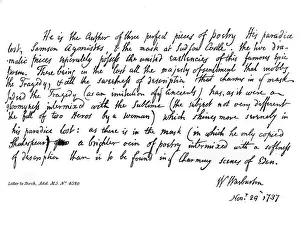 He is the Author of three perfect pieces of poetry. His paradise
lost, Samson Agonistes, & the mask at Ludlow Castle. the two dra-
matic pieces separately possess the united excellencies of this famous epic
poem. There being in the lost all the majesty of sentiment that enobles
the Tragedy & all the sweetness of description that charms in ye mask.
the Tragedy (as an imitation of ye ancients) has, as it were a
intermixed with the Sublime (the subject not very different
the fall of two Heros by a woman) which shines more serenely in
his paradise lost: as there is in the mask (in which he only copied
Shakespear) a brighter vein of poetry intermixed with a softness
of description than is to be found in ye charming scenes of Eden.
W Warburton
Nov. 29 1737
Letter to Birch, Add. M.S. No. 4320